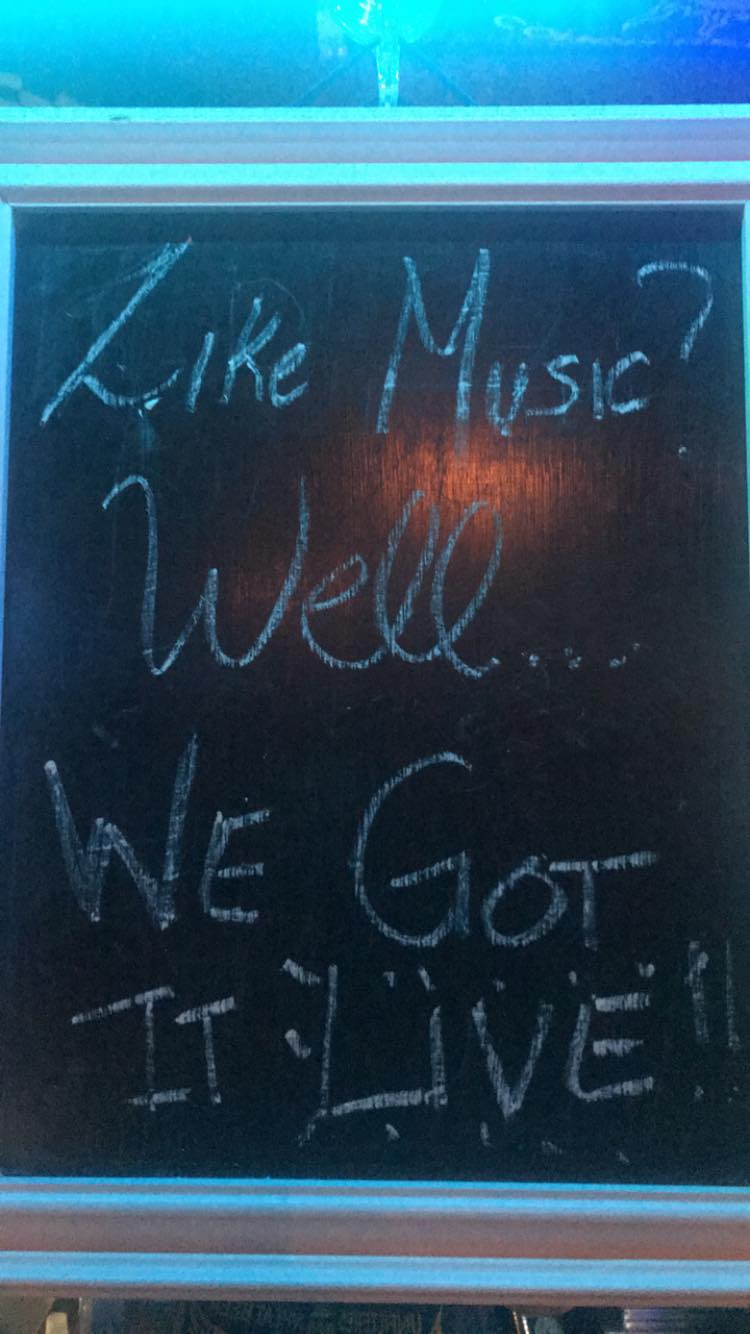 Like Music?
Well....
WE GOT
IT LIVE!!